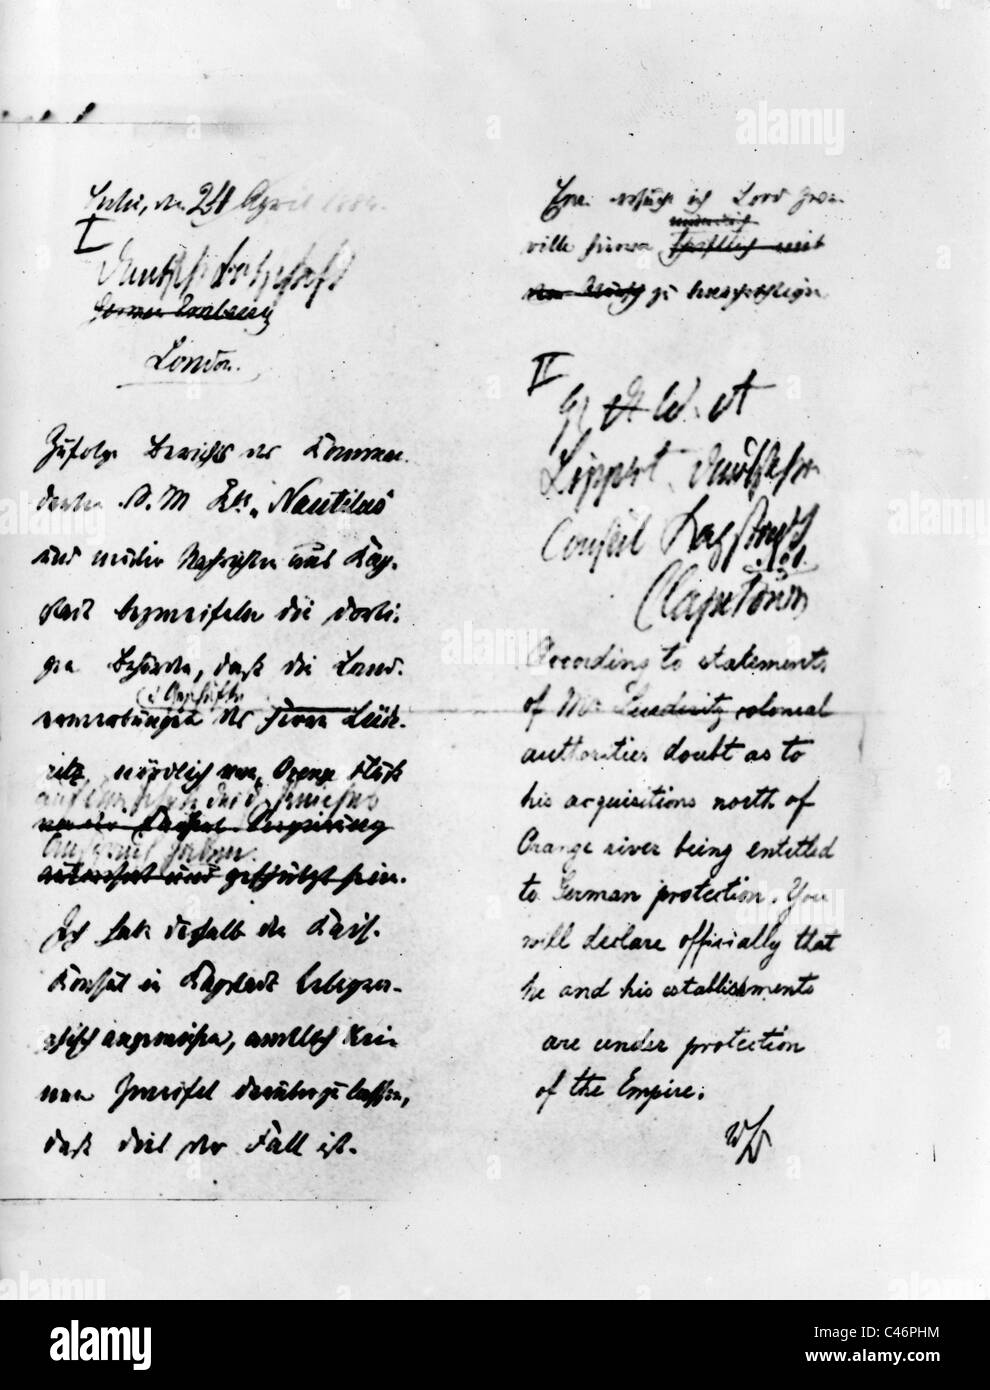 Berlin, den 24 April 1884.
I
Deutsche Botschaft
German Embassy
London.
Zufolge Berichts des Komman-
danten S.M. „Nautilus"
und Nachrichten aus Kap-
stadt bezweifeln die dorti-
gen Behörden, daß die Land-
erwerbungen des Herrn Lüde-
ritz nördlich vom Oranje Fluß
auf den Schutz des d. Reiches
Anspruch haben.
und geschützt seien.
Ich habe deshalb den Kais.
Konsul in Kapstadt telegra-
phisch angewiesen, amtlich kei-
nen Zweifel darüber zu lassen,
daß dies der Fall ist.
Ew. ersuche ich Lord Gran-
ville hiervon
zu benachrichtigen
II
Lippert Deutscher
Consul Kapstadt
Capetown
According to statements
of Mr. Luederitz colonial
authorities doubt as to
his acquisitions north of
Orange river being entitled
to German protection. You
will declare officially that
he and his establishments
are under protection
of the Empire.
alamy
a
C46PHM
www.alamy.com